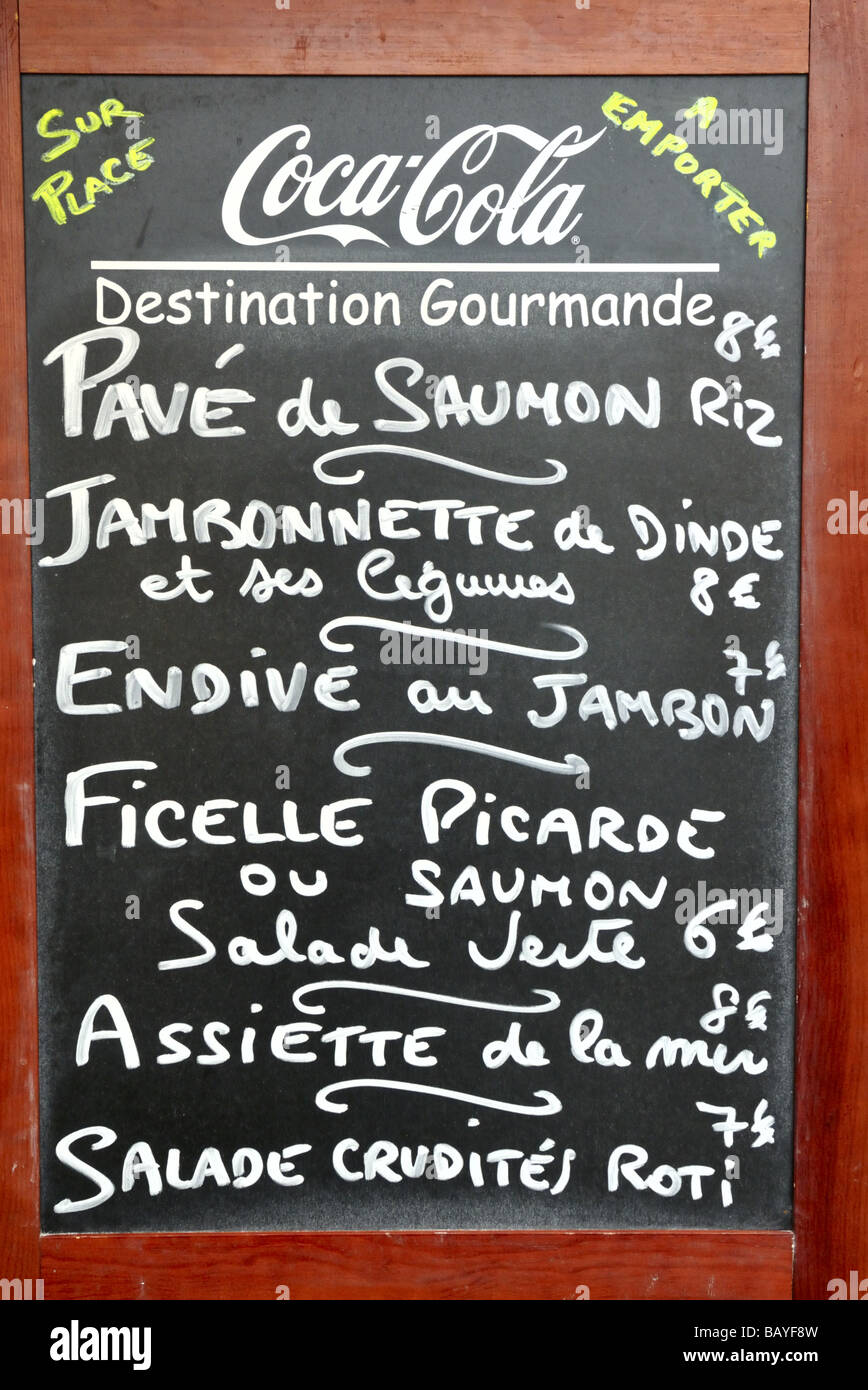 SUR
PLACE
A
EMPORTER
Coca-Cola
Destination Gourmande
8€
PAVÉ de SAUMON RIZ
JAMBONNETTE de DINDE
et ses légumes 8€
7€
ENDIVE au JAMBON
FICELLE PICARDE
OU SAUMON
Salade Verte 6€
8€
ASSIETTE de la mer
7€
SALADE CRUDITÉS ROTI
alamy
Image ID: BAYF8W
www.alamy.com